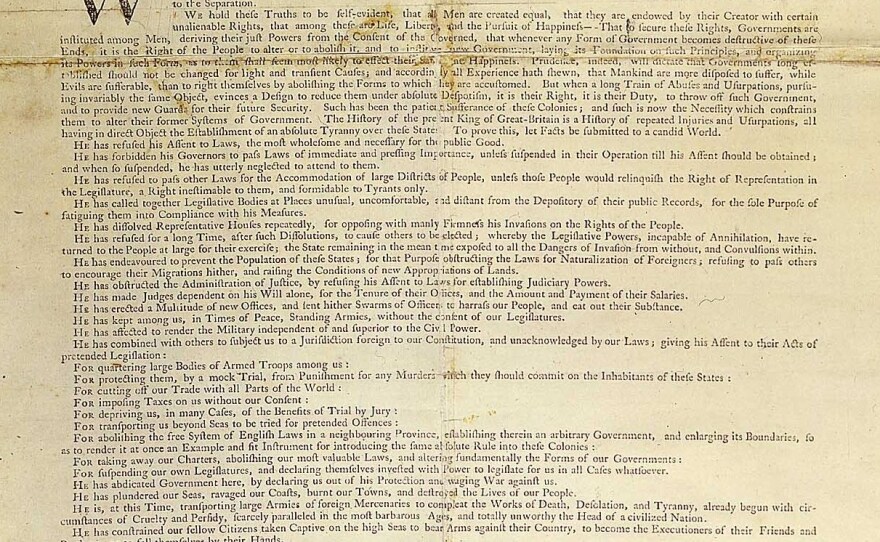 W
to the Separation.
WE hold these Truths to be self-evident, that all Men are created equal, that they are endowed by their Creator with certain
unalienable Rights, that among these are Life, Liberty, and the Pursuit of Happiness—That to secure these Rights, Governments are
instituted among Men, deriving their just Powers from the Consent of the Governed, that whenever any Form of Government becomes destructive of these
Ends, it is the Right of the People to alter or to abolish it, and to institute new Government, laying its Foundation on such Principles, and organizing
its Powers in such Form, as to them shall seem most likely to effect their Safety and Happiness. Prudence, indeed, will dictate that Governments long es-
tablished should not be changed for light and transient Causes; and accordingly all Experience hath shewn, that Mankind are more disposed to suffer, while
Evils are sufferable, than to right themselves by abolishing the Forms to which they are accustomed. But when a long Train of Abuses and Usurpations, pursu-
ing invariably the same Object, evinces a Design to reduce them under absolute Despotism, it is their Right, it is their Duty, to throw off such Government,
and to provide new Guards for their future Security. Such has been the patient Sufferance of these Colonies; and such is now the Necessity which constrains
them to alter their former Systems of Government. The History of the present King of Great-Britain is a History of repeated Injuries and Usurpations, all
having in direct Object the Establishment of an absolute Tyranny over these States. To prove this, let Facts be submitted to a candid World.
HE has refused his Assent to Laws, the most wholesome and necessary for the public Good.
HE has forbidden his Governors to pass Laws of immediate and pressing Importance, unless suspended in their Operation till his Assent should be obtained;
and when so suspended, he has utterly neglected to attend to them.
HE has refused to pass other Laws for the Accommodation of large Districts of People, unless those People would relinquish the Right of Representation in
the Legislature, a Right inestimable to them, and formidable to Tyrants only.
HE has called together Legislative Bodies at Places unusual, uncomfortable, and distant from the Depository of their public Records, for the sole Purpose of
fatiguing them into Compliance with his Measures.
HE has dissolved Representative Houses repeatedly, for opposing with manly Firmness his Invasions on the Rights of the People.
HE has refused for a long Time, after such Dissolutions, to cause others to be elected; whereby the Legislative Powers, incapable of Annihilation, have re-
turned to the People at large for their exercise; the State remaining in the mean time exposed to all the Dangers of Invasion from without, and Convulsions within.
HE has endeavoured to prevent the Population of these States; for that Purpose obstructing the Laws for Naturalization of Foreigners; refusing to pass others
to encourage their Migrations hither, and raising the Conditions of new Appropriations of Lands.
HE has obstructed the Administration of Justice, by refusing his Assent to Laws for establishing Judiciary Powers.
HE has made Judges dependent on his Will alone, for the Tenure of their Offices, and the Amount and Payment of their Salaries.
HE has erected a Multitude of new Offices, and sent hither Swarms of Officers to harrass our People, and eat out their Substance.
HE has kept among us, in Times of Peace, Standing Armies, without the consent of our Legislatures.
HE has affected to render the Military independent of and superior to the Civil Power.
HE has combined with others to subject us to a Jurisdiction foreign to our Constitution, and unacknowledged by our Laws; giving his Assent to their Acts of
pretended Legislation:
FOR quartering large Bodies of Armed Troops among us:
FOR protecting them, by a mock Trial, from Punishment for any Murders which they should commit on the Inhabitants of these States:
FOR cutting off our Trade with all Parts of the World:
FOR imposing Taxes on us without our Consent:
FOR depriving us, in many Cases, of the Benefits of Trial by Jury:
FOR transporting us beyond Seas to be tried for pretended Offences:
FOR abolishing the free System of English Laws in a neighbouring Province, establishing therein an arbitrary Government, and enlarging its Boundaries, so
as to render it at once an Example and fit Instrument for introducing the same absolute Rule into these Colonies:
FOR taking away our Charters, abolishing our most valuable Laws, and altering fundamentally the Forms of our Governments:
FOR suspending our own Legislatures, and declaring themselves invested with Power to legislate for us in all Cases whatsoever.
HE has abdicated Government here, by declaring us out of his Protection and waging War against us.
HE has plundered our Seas, ravaged our Coasts, burnt our Towns, and destroyed the Lives of our People.
HE is, at this Time, transporting large Armies of foreign Mercenaries to compleat the Works of Death, Desolation, and Tyranny, already begun with cir-
cumstances of Cruelty and Perfidy, scarcely paralleled in the most barbarous Ages, and totally unworthy the Head of a civilized Nation.
HE has constrained our fellow Citizens taken Captive on the high Seas to bear Arms against their Country, to become the Executioners of their Friends and
to fall themselves by their Hands.